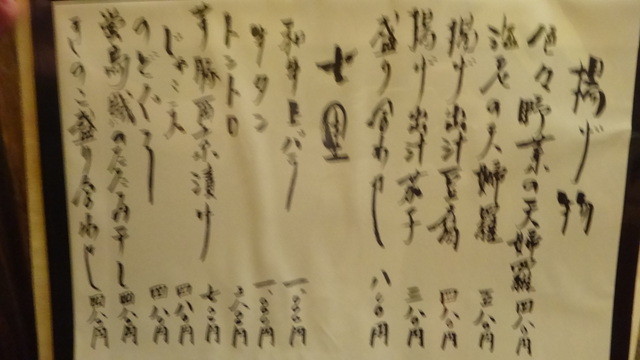 揚げ物
色々野菜の天婦羅 四八〇円
海老の天婦羅 五八〇円
揚げ出汁豆腐 四八〇円
揚げ出汁茄子 三八〇円
盛り合わせ 八〇〇円
七里
和牛上バラ 一、〇〇〇円
牛タン
トントロ
芋豚西京漬け 七〇〇円
四八〇円
のどぐろ 四八〇円
蛍烏賊の 干し 四八〇円
きのこ盛り合わせ 四八〇円